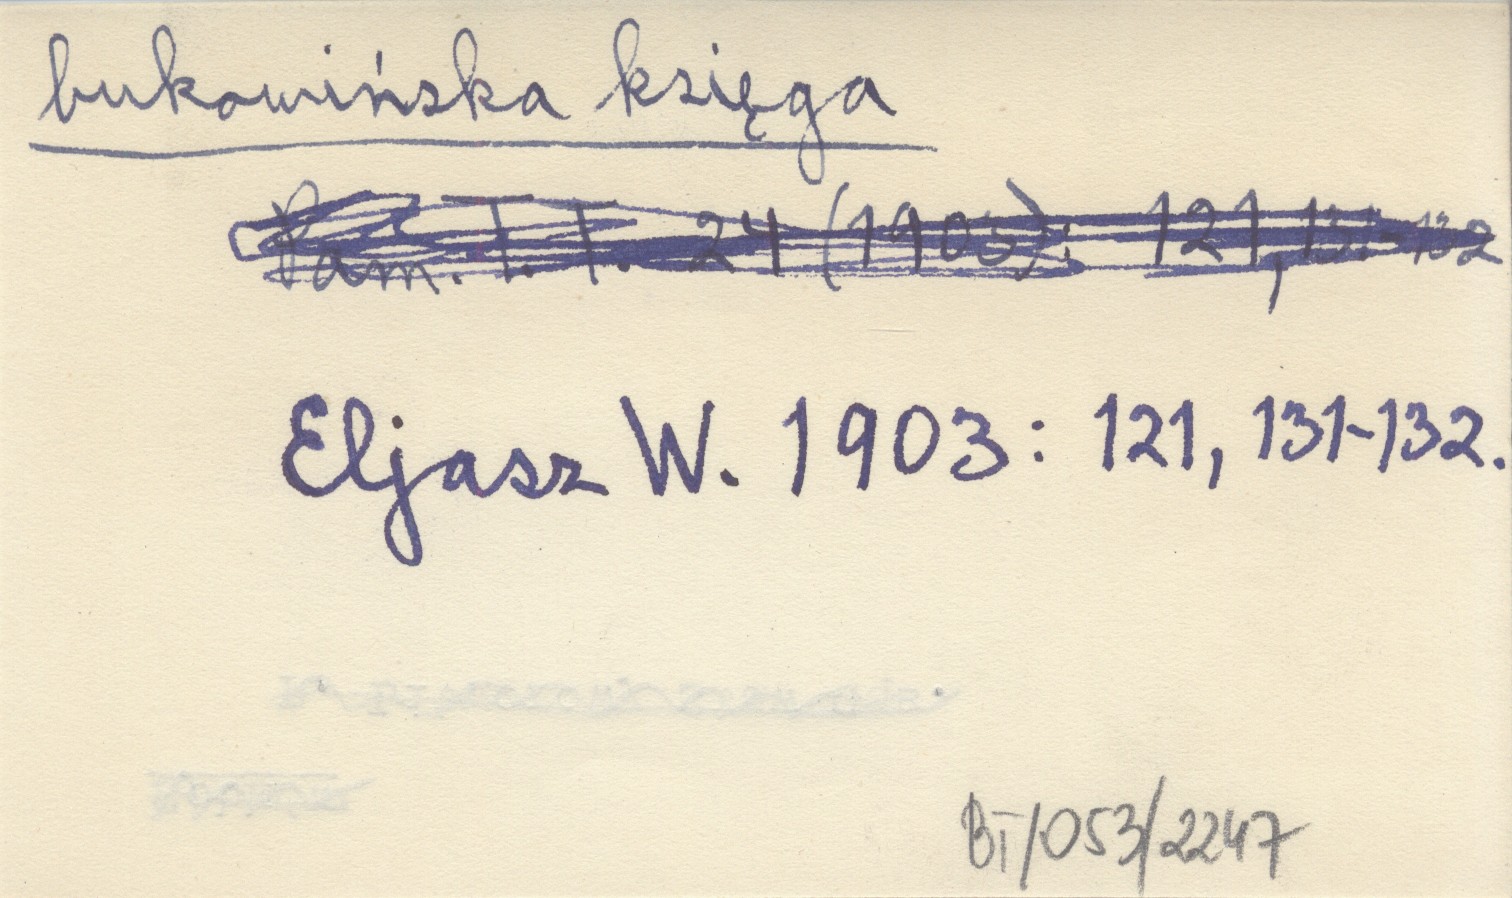 bukowińska księga
Pam. T. T. 24 (1903): 121, 131-132
Eljasz W. 1903: 121, 131-132.
BT/053/2247